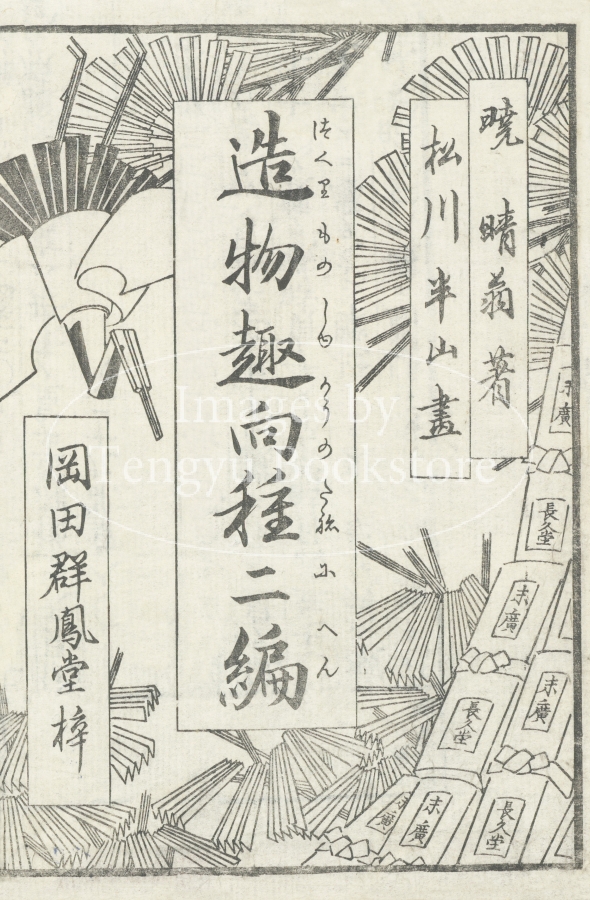 暁晴翁著
松川半山畫
造物趣向種二編
つくりものしゆかうのたねにへん
岡田群鳳堂梓
末廣
長久堂
末廣
末廣
長久堂
末廣
末廣
長久堂
Images by
Tengyu Bookstore